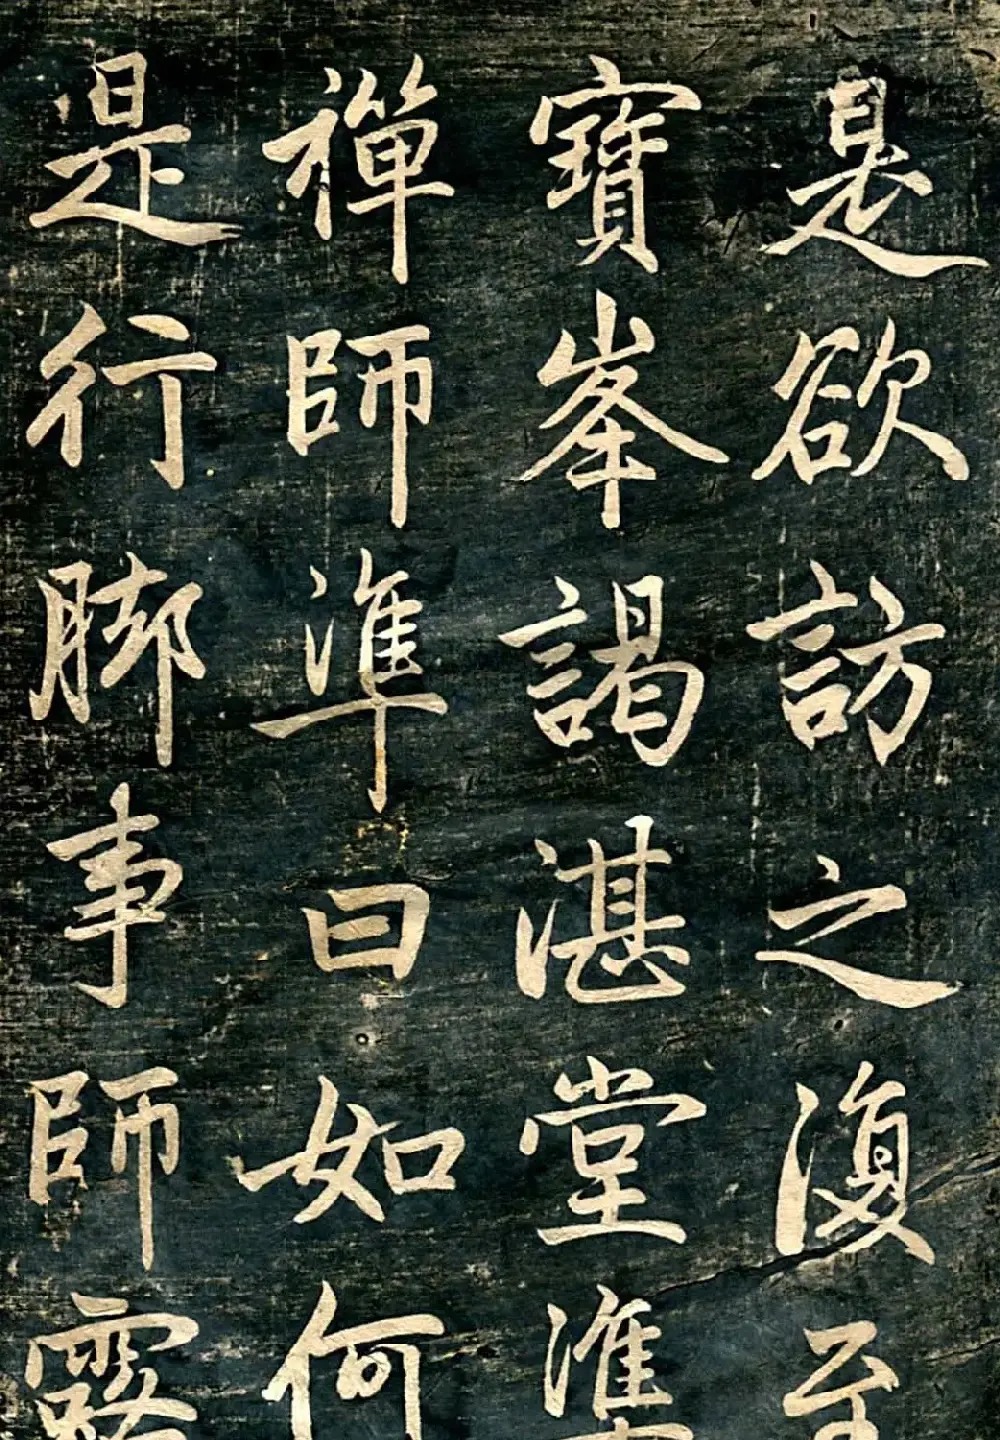 是欲訪之復至
寶峯謁湛堂準
禪師準曰如何
是行脚事師露